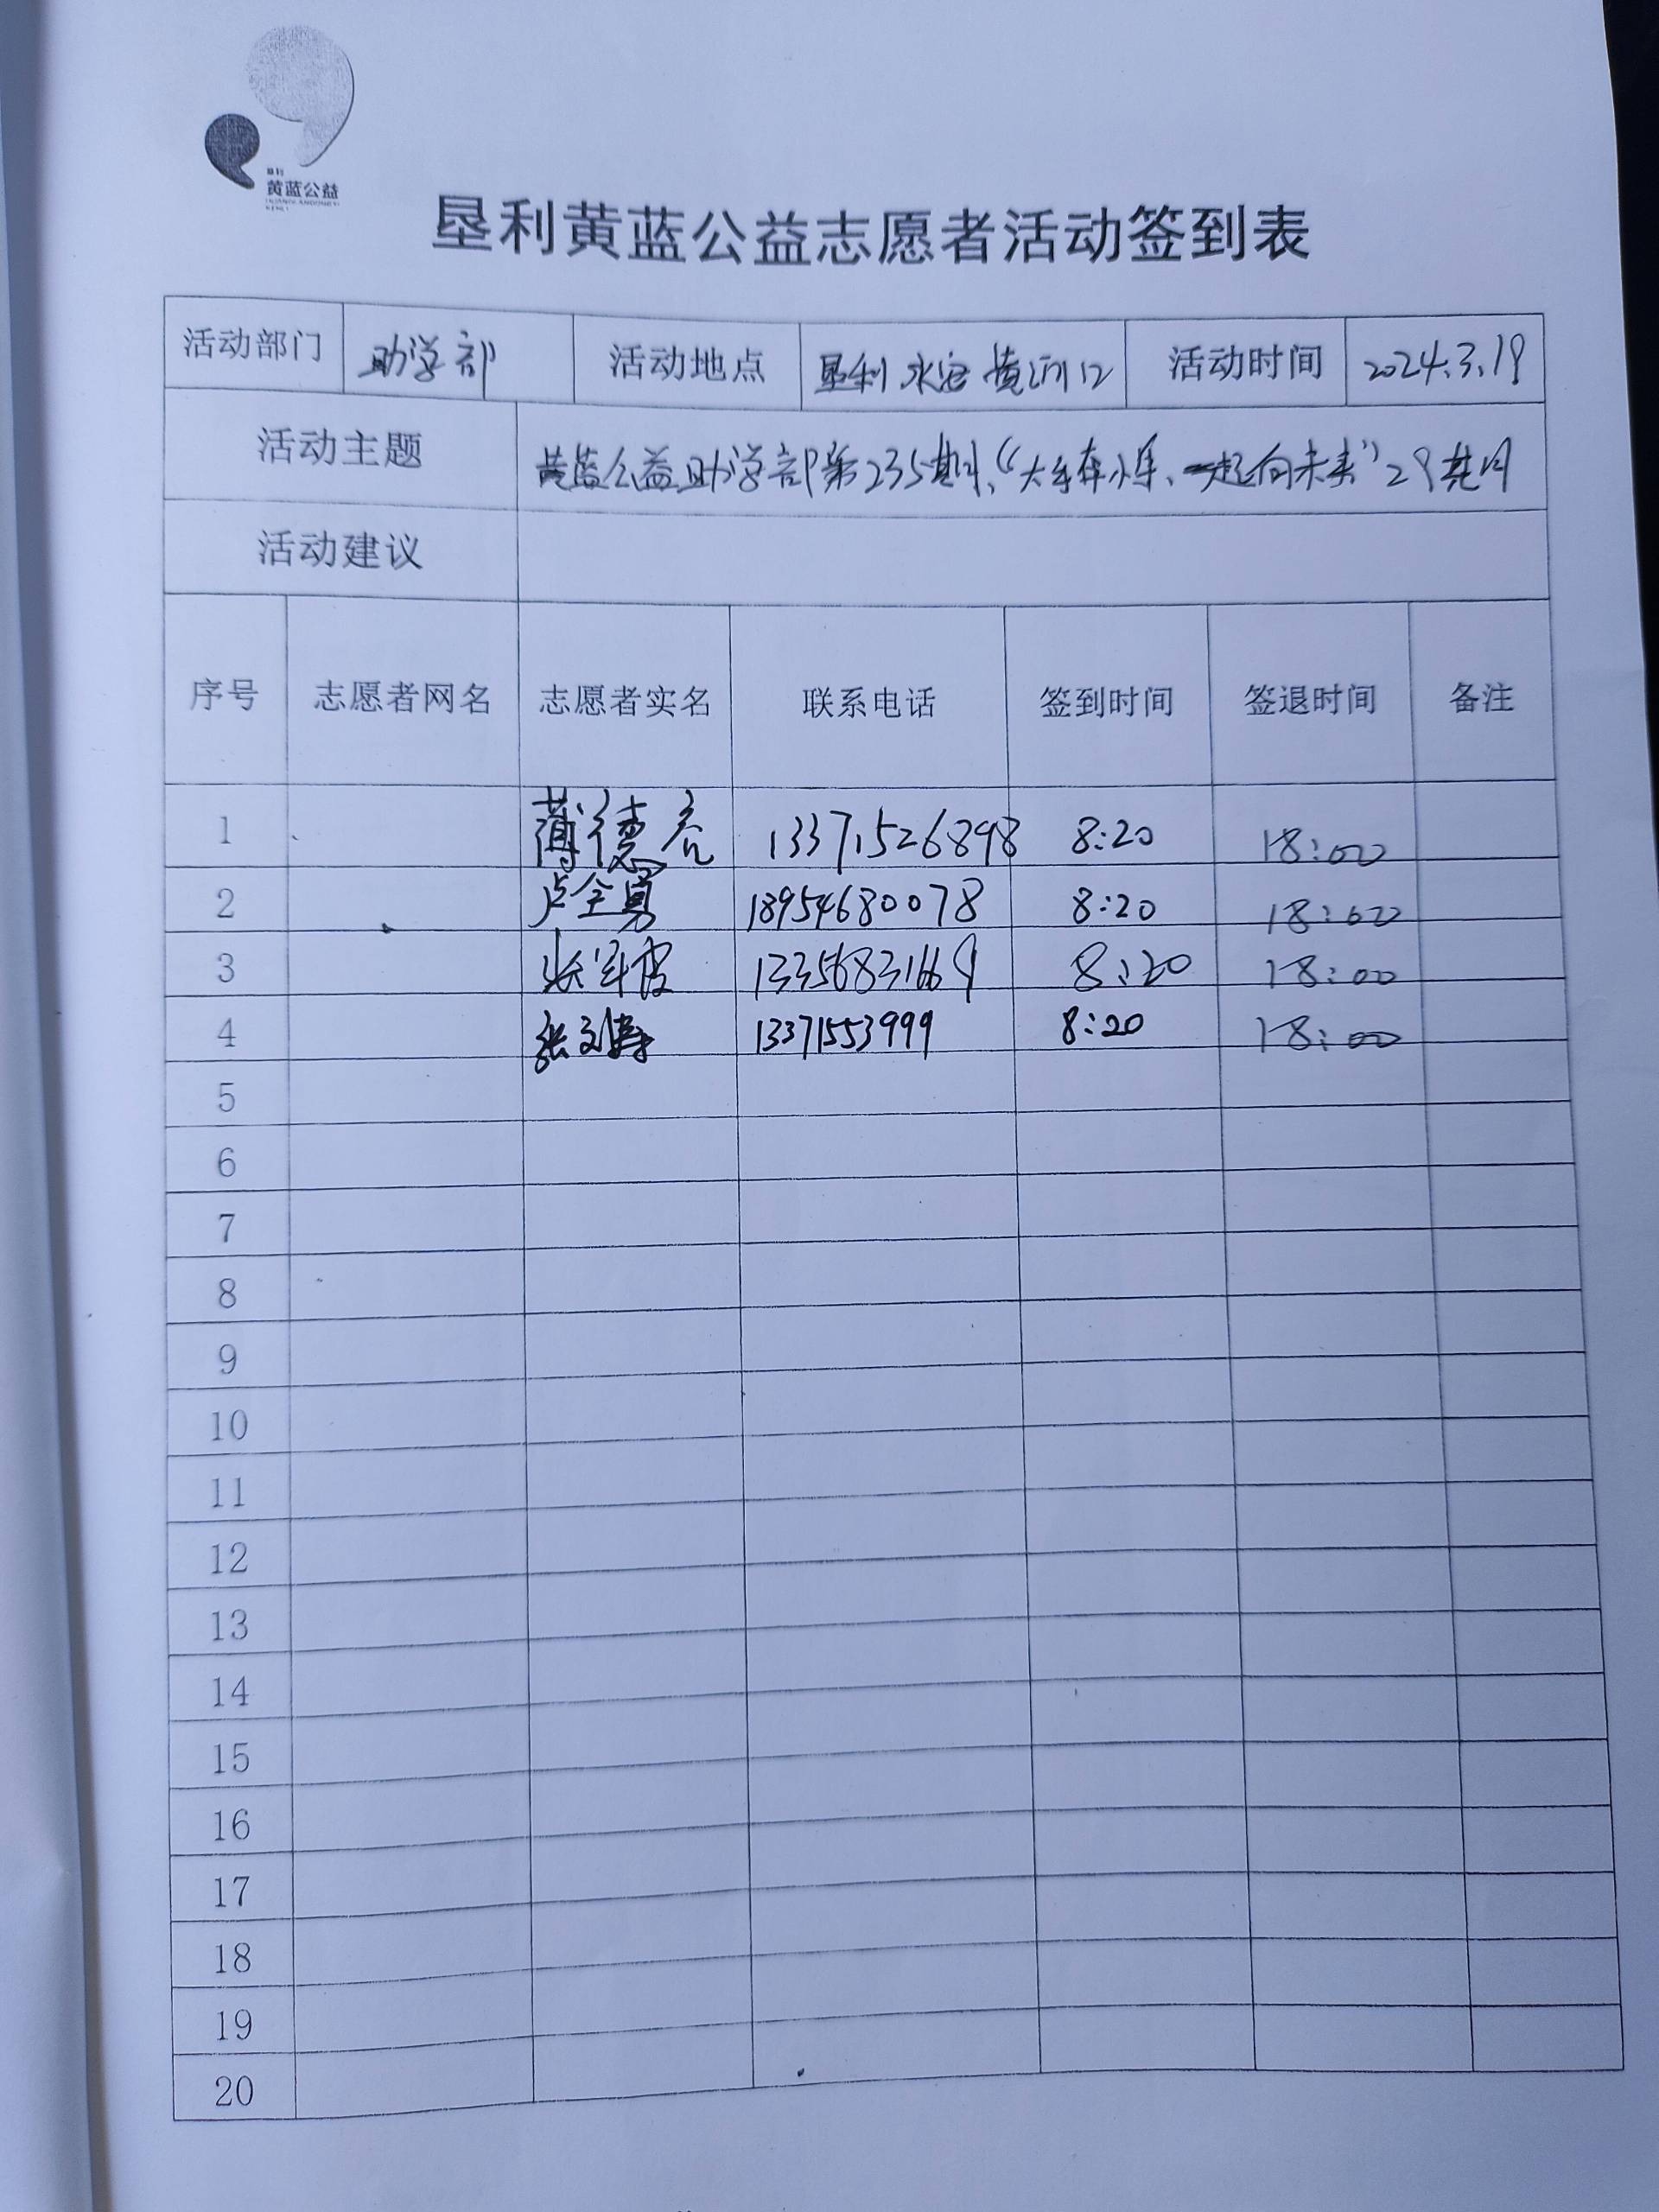 垦利
黄蓝公益
垦利黄蓝公益志愿者活动签到表
活动部门 助学部 活动地点 垦利 永安 黄河口 活动时间 2024.3.19
活动主题 黄蓝公益助学部第235期、“大手牵小手、一起向未来”29其月
活动建议
序号 志愿者网名 志愿者实名 联系电话 签到时间 签退时间 备注
1 薄德 13371526898 8:20 18:00
2 卢全勇 18954680078 8:20 18:00
3 张军 13356831669 8:20 18:00
4 张文涛 13371553999 8:20 18:00
5
6
7
8
9
10
11
12
13
14
15
16
17
18
19
20